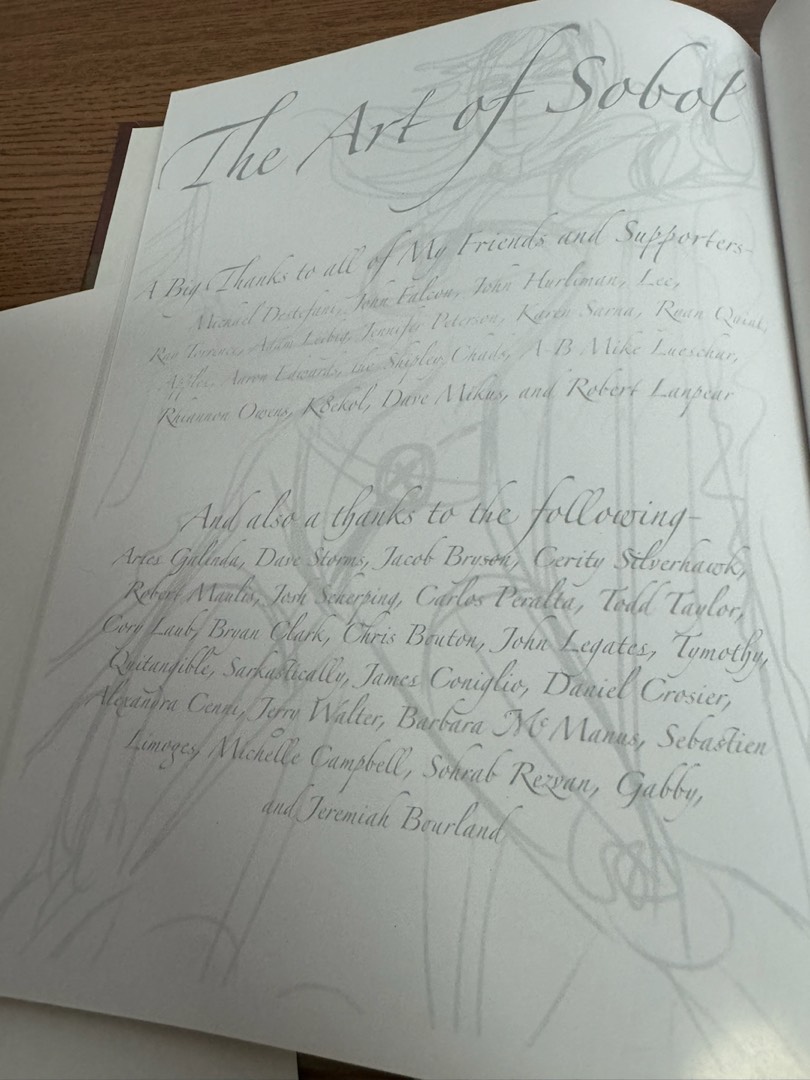 The Art of Sobol
A Big Thanks to all of My Friends and Supporters-
Michael Destefani, John Falcon, John Hurliman, Lee,
Ray Torrence, Adam Leibig, Jennifer Peterson, Karen Sarna, Ryan Quink,
Apples, Aaron Edwards, the Shipley Chads, A-B Mike Lueschur,
Rhiannon Owens, K8ekol, Dave Mikus, and Robert Lanpear
And also a thanks to the following-
Aries Galinda, Dave Storms, Jacob Bryson, Cerity Silverhawk,
Robert Maulis, Josh Scherping, Carlos Peralta, Todd Taylor,
Cory Laub, Bryan Clark, Chris Bouton, John Legates, Tymothy,
Quitangible, Sarkastically, James Coniglio, Daniel Crosier,
Alexandra Cenni, Jerry Walter, Barbara McManus, Sebastien
Limoges, Michelle Campbell, Sohrab Rezvan, Gabby,
and Jeremiah Bourland